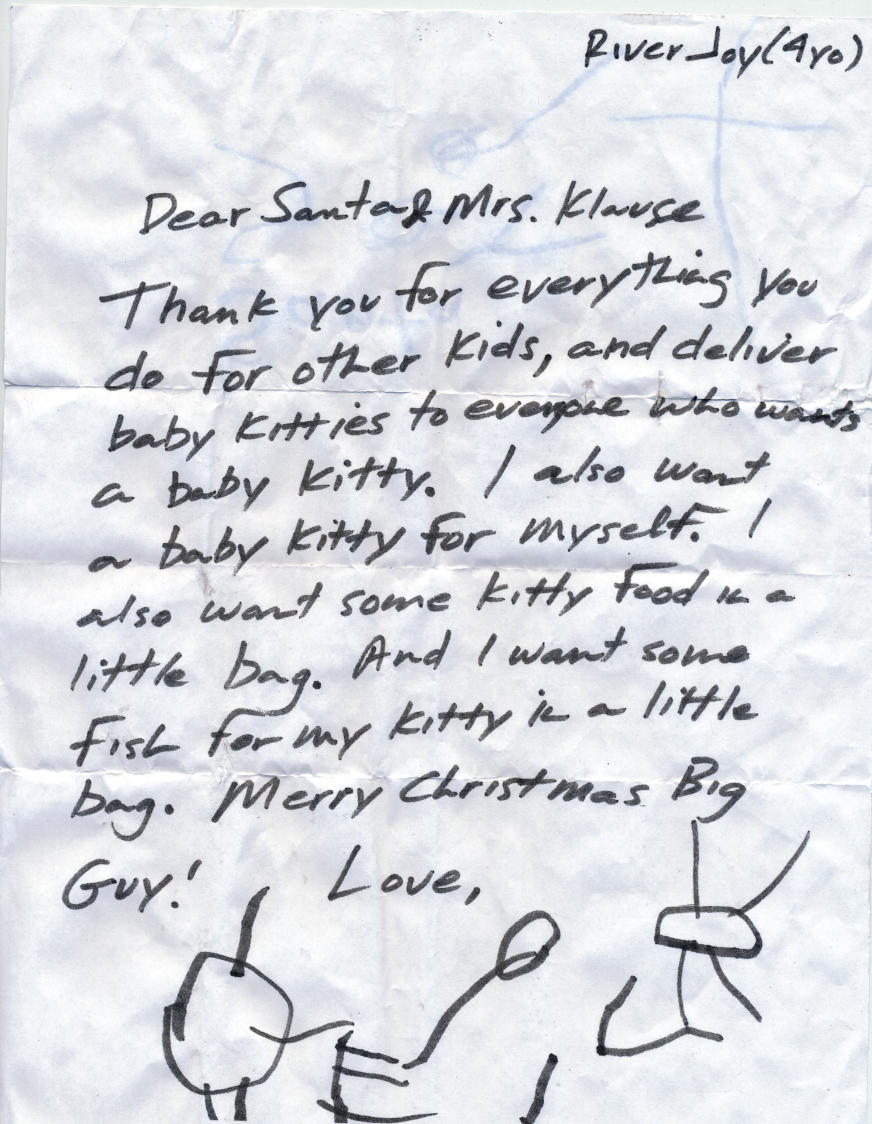 River Joy (4yo)
Dear Santa & Mrs. Klause
Thank you for everything you
do for other kids, and deliver
baby kitties to everyone who wants
a baby kitty. I also want
a baby kitty for myself. I
also want some kitty food in a
little bag. And I want some
fish for my kitty in a little
bag. Merry Christmas Big
Guy! Love,